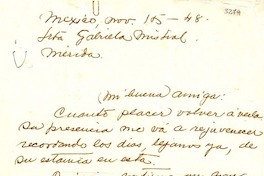 3289
Mexico, nov. 15-48.
Srta Gabriela Mistral.
Mérida.
Mi buena amiga:
Cuanto placer volver á verla
su presencia me vá a rejuvenecer
recordando los dias, lejanos ya, de
su estancia en esta.